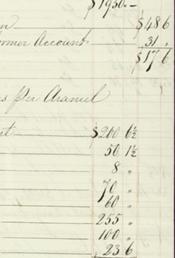 $1950.-
$48 6
ormer Account 31 "
$17 6
s per Aramel
st $200 6½
50 1½
8 "
70 "
60 "
255 "
100 "
23 6